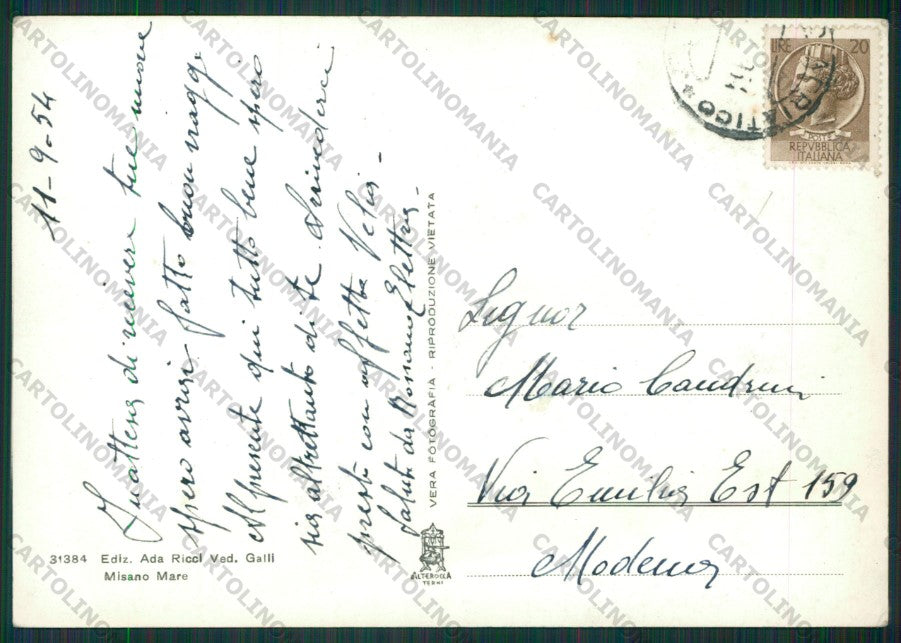 11-9-54
In attesa di ricevere tue nuove
spero avrai fatto buon viaggio
Al presente qui tutto bene spero
sia altrettanto di te arrivederci
presto con affetto Velia
saluti da Rossana Elettra -
VERA FOTOGRAFIA - RIPRODUZIONE VIETATA
31384 Ediz. Ada Ricci Ved. Galli
Misano Mare
ALTEROCCA
TERNI
LIRE 20
POSTE
REPVBBLICA
ITALIANA
ADRIATICO *
Signor
Mario Candrini
Via Emilia Est 159
Modena
CARTOLINOMANIA